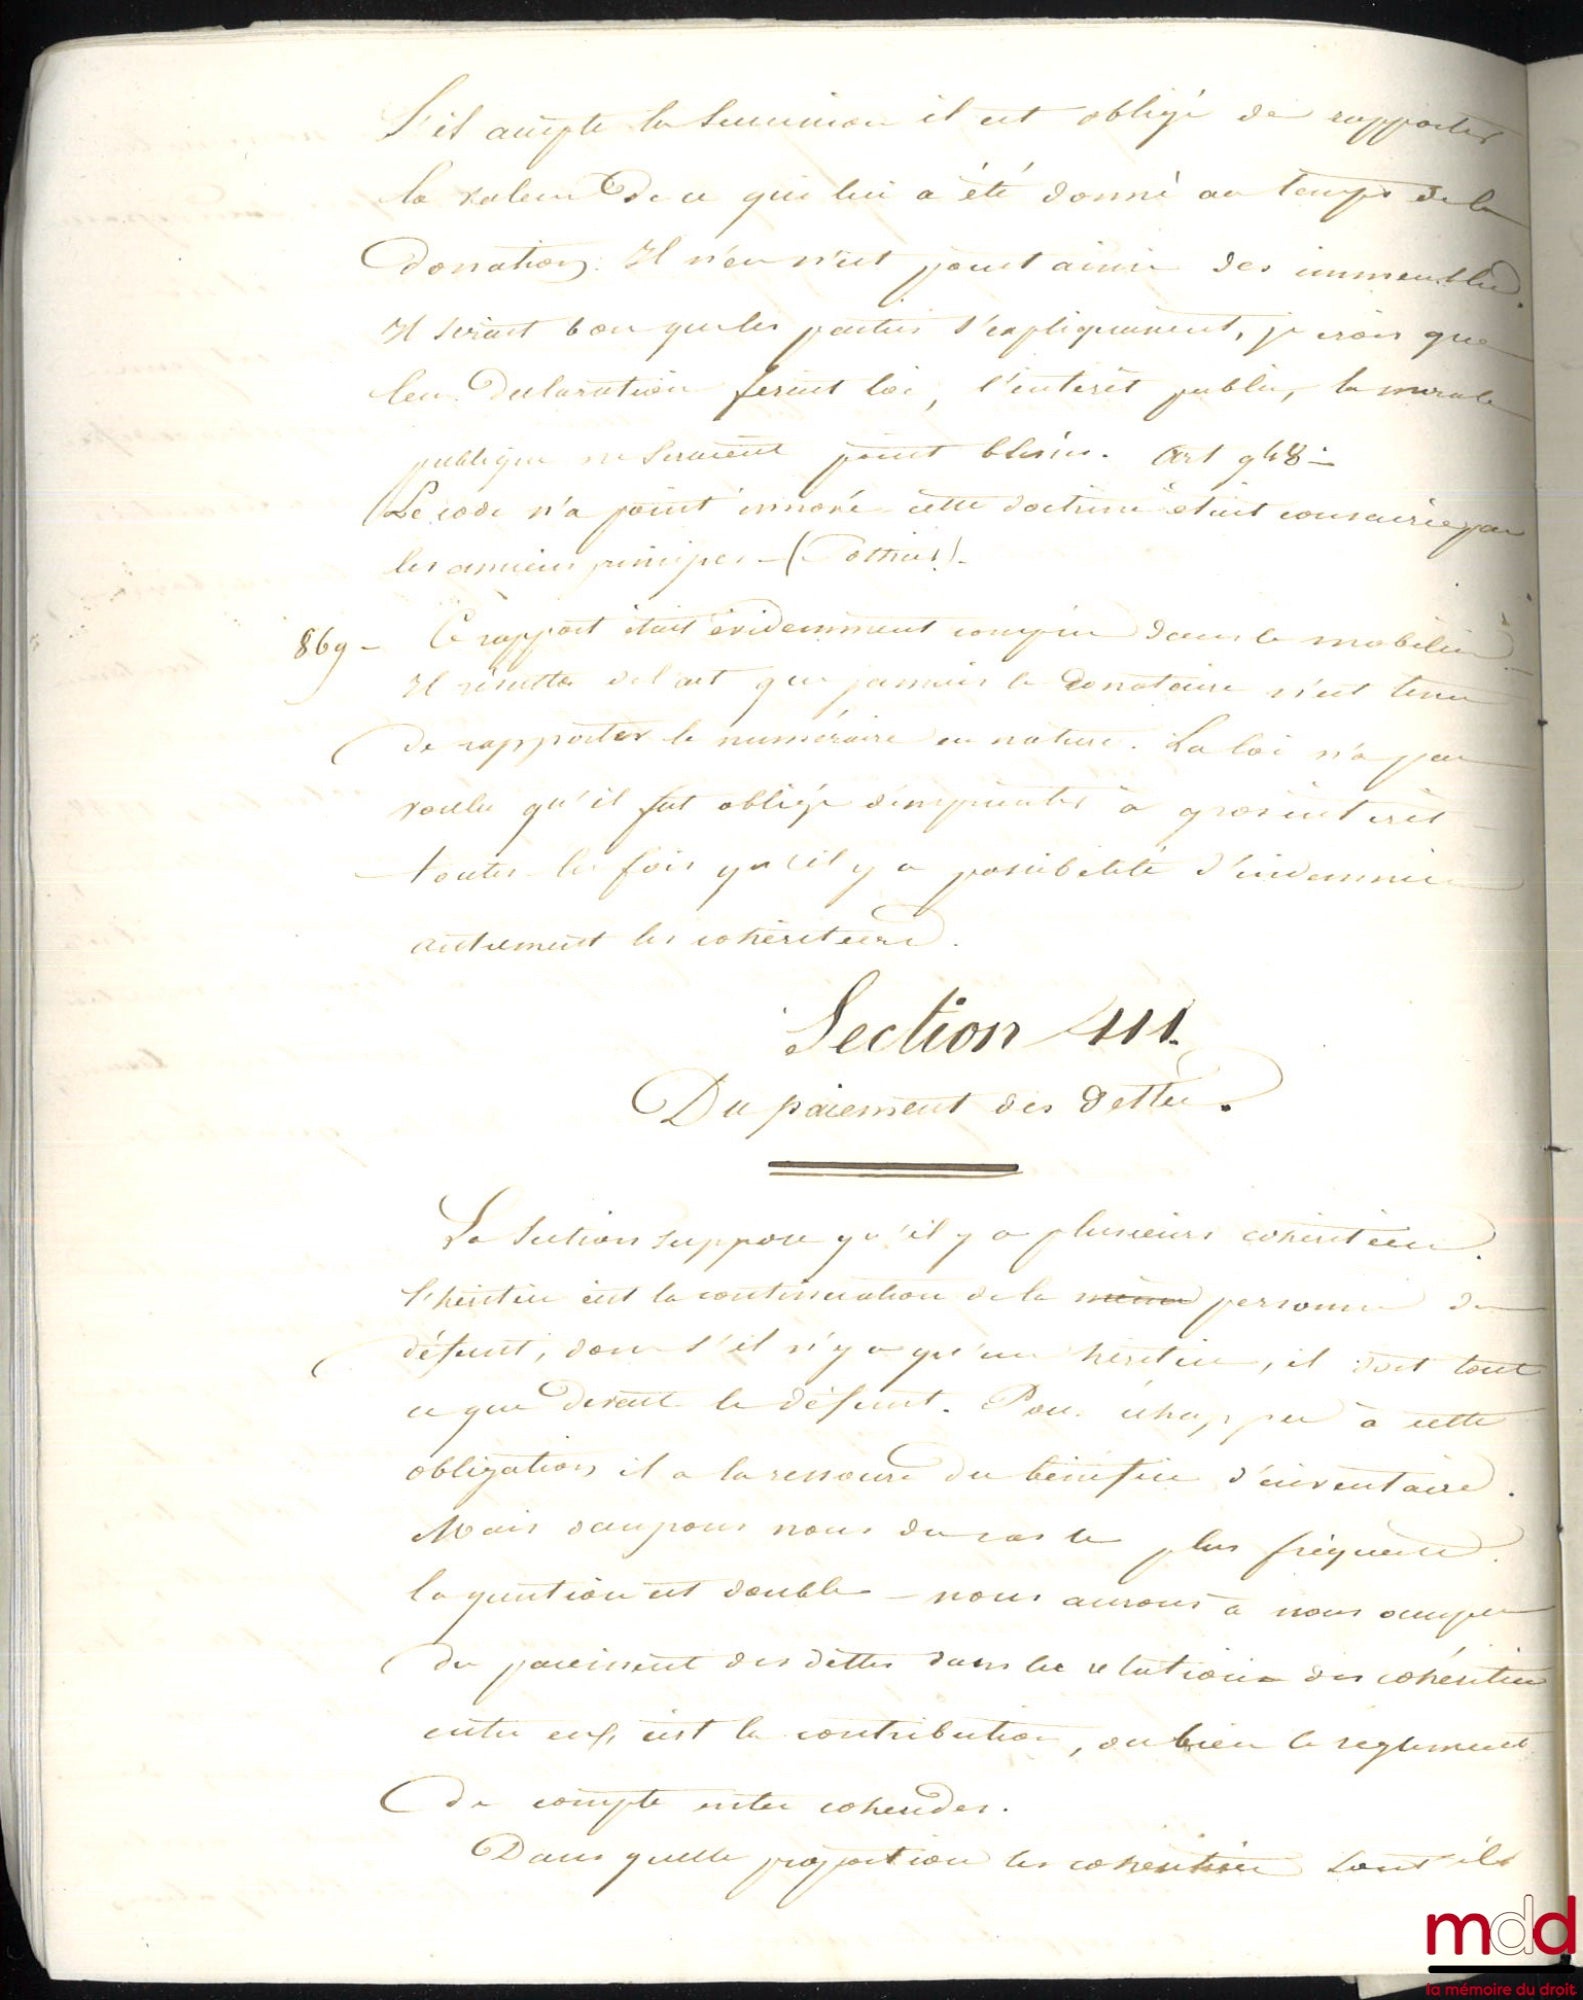 S'il accepte la succession il est obligé de rapporter
la valeur de ce qui lui a été donné au temps de la
donation. Il n'en n'est point ainsi des immeubles.
Il serait bon que les parties s'expliquassent, je crois que
leur déclaration ferait loi, l'intérêt public, la morale
publique ne seraient point blessés. Art 948 -
Le code n'a point innové cette doctrine était consacrée par
les anciens principes - (Pothier) -
869 - Ce rapport était évidemment compris dans le mobilier
Il résulte de l'art que jamais le donataire n'est tenu
de rapporter le numéraire en nature. La loi n'a pas
voulu qu'il fut obligé d'emprunter à gros intérêt
toutes les fois qu'il y a possibilité d'indemniser
autrement les cohéritiers.
Section III.
Du paiement des dettes.
La section suppose qu'il y a plusieurs cohéritiers.
l'héritier est la continuation de la même personne du
défunt, donc s'il n'y a qu'un héritier, il doit tout
ce que devait le défunt. Pour échapper à cette
obligation il a la ressource du bénéfice d'inventaire.
Mais occupons nous du cas le plus fréquent.
la question est double - nous aurons à nous occuper
du paiement des dettes dans les relations des cohéritiers
entre eux, c'est la contribution, ou bien le règlement
de compte entre cohérédes.
Dans quelle proportion les cohéritiers sont ils
mdd
la mémoire du droit